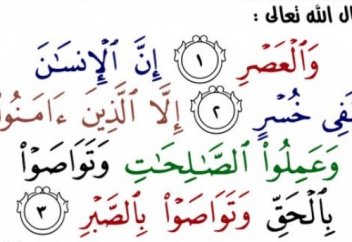 ال الله تعالى :
وَالْعَصْرِ ١ إِنَّ الْإِنسَـٰنَ
فِى خُسْرٍ ٢ إِلَّا الَّذِينَ ءَامَنُوا
وَعَمِلُوا۟ الصَّـٰلِحَـٰتِ وَتَوَاصَوْا۟
بِالْحَقِّ وَتَوَاصَوْا۟ بِالصَّبْرِ ٣